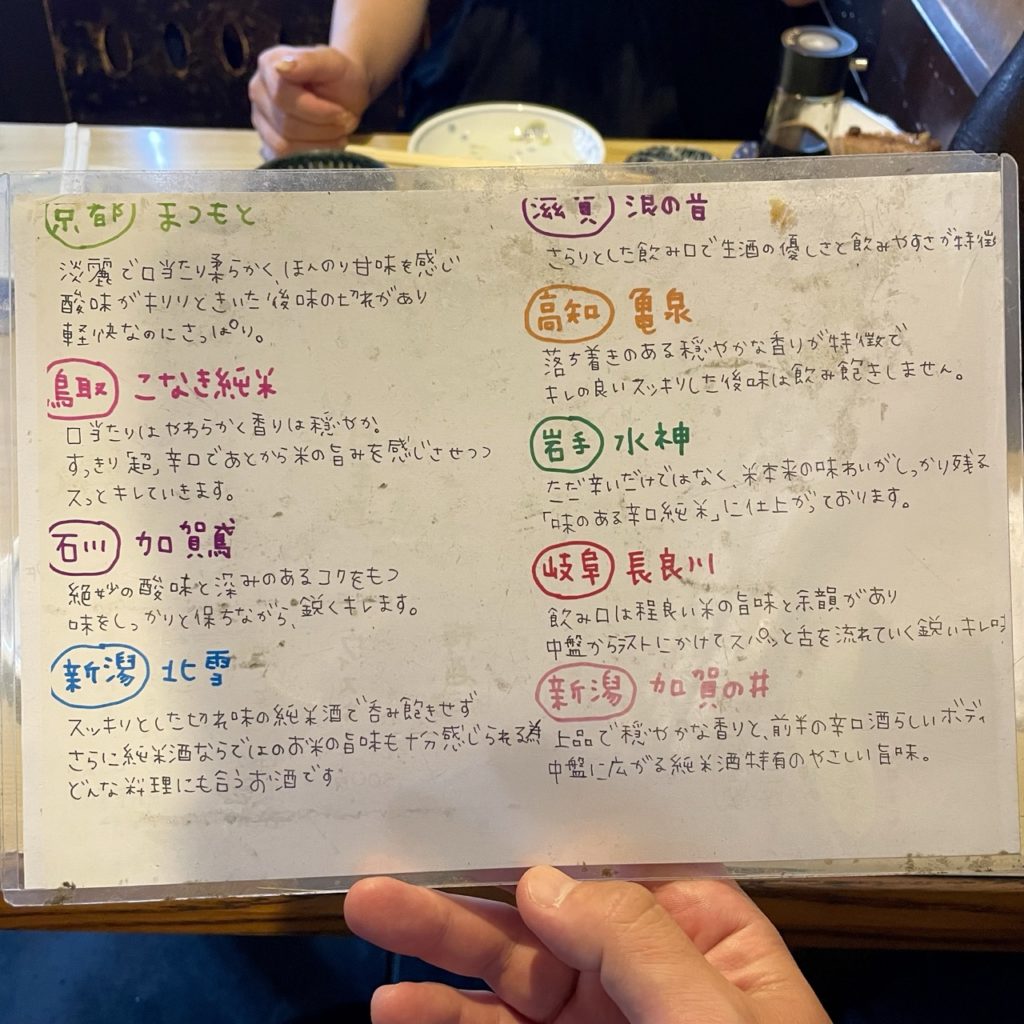 京都 まつもと
淡麗で口当たり柔らかく、ほんのり甘味を感じ
酸味がキリリときいた後味の切れがあり
軽快なのにさっぱり。
鳥取 こなき純米
口当たりはやわらかく香りは穏やか。
すっきり「超」辛口であとから米の旨みを感じさせつつ
スっとキレていきます。
石川 加賀鳶
絶妙の酸味と深みのあるコクをもつ
味をしっかりと保ちながら、鋭くキレます。
新潟 北雪
スッキリとした切れ味の純米酒で呑み飽きせず
さらに純米酒ならではのお米の旨味も十分感じられる為
どんな料理にも合うお酒です
滋賀 浪の音
さらりとした飲み口で生酒の優しさと飲みやすさが特徴
高知 亀泉
落ち着きのある穏やかな香りが特徴で
キレの良いスッキリした後味は飲み飽きしません。
岩手 水神
ただ辛いだけではなく、米本来の味わいがしっかり残る
「味のある辛口純米」に仕上がっております。
岐阜 長良川
飲み口は程良い米の旨味と余韻があり
中盤からラストにかけてスパッと舌を流れていく鋭いキレ味
新潟 加賀の井
上品で穏やかな香りと、前半の辛口酒らしいボディ
中盤に広がる純米酒特有のやさしい旨味。